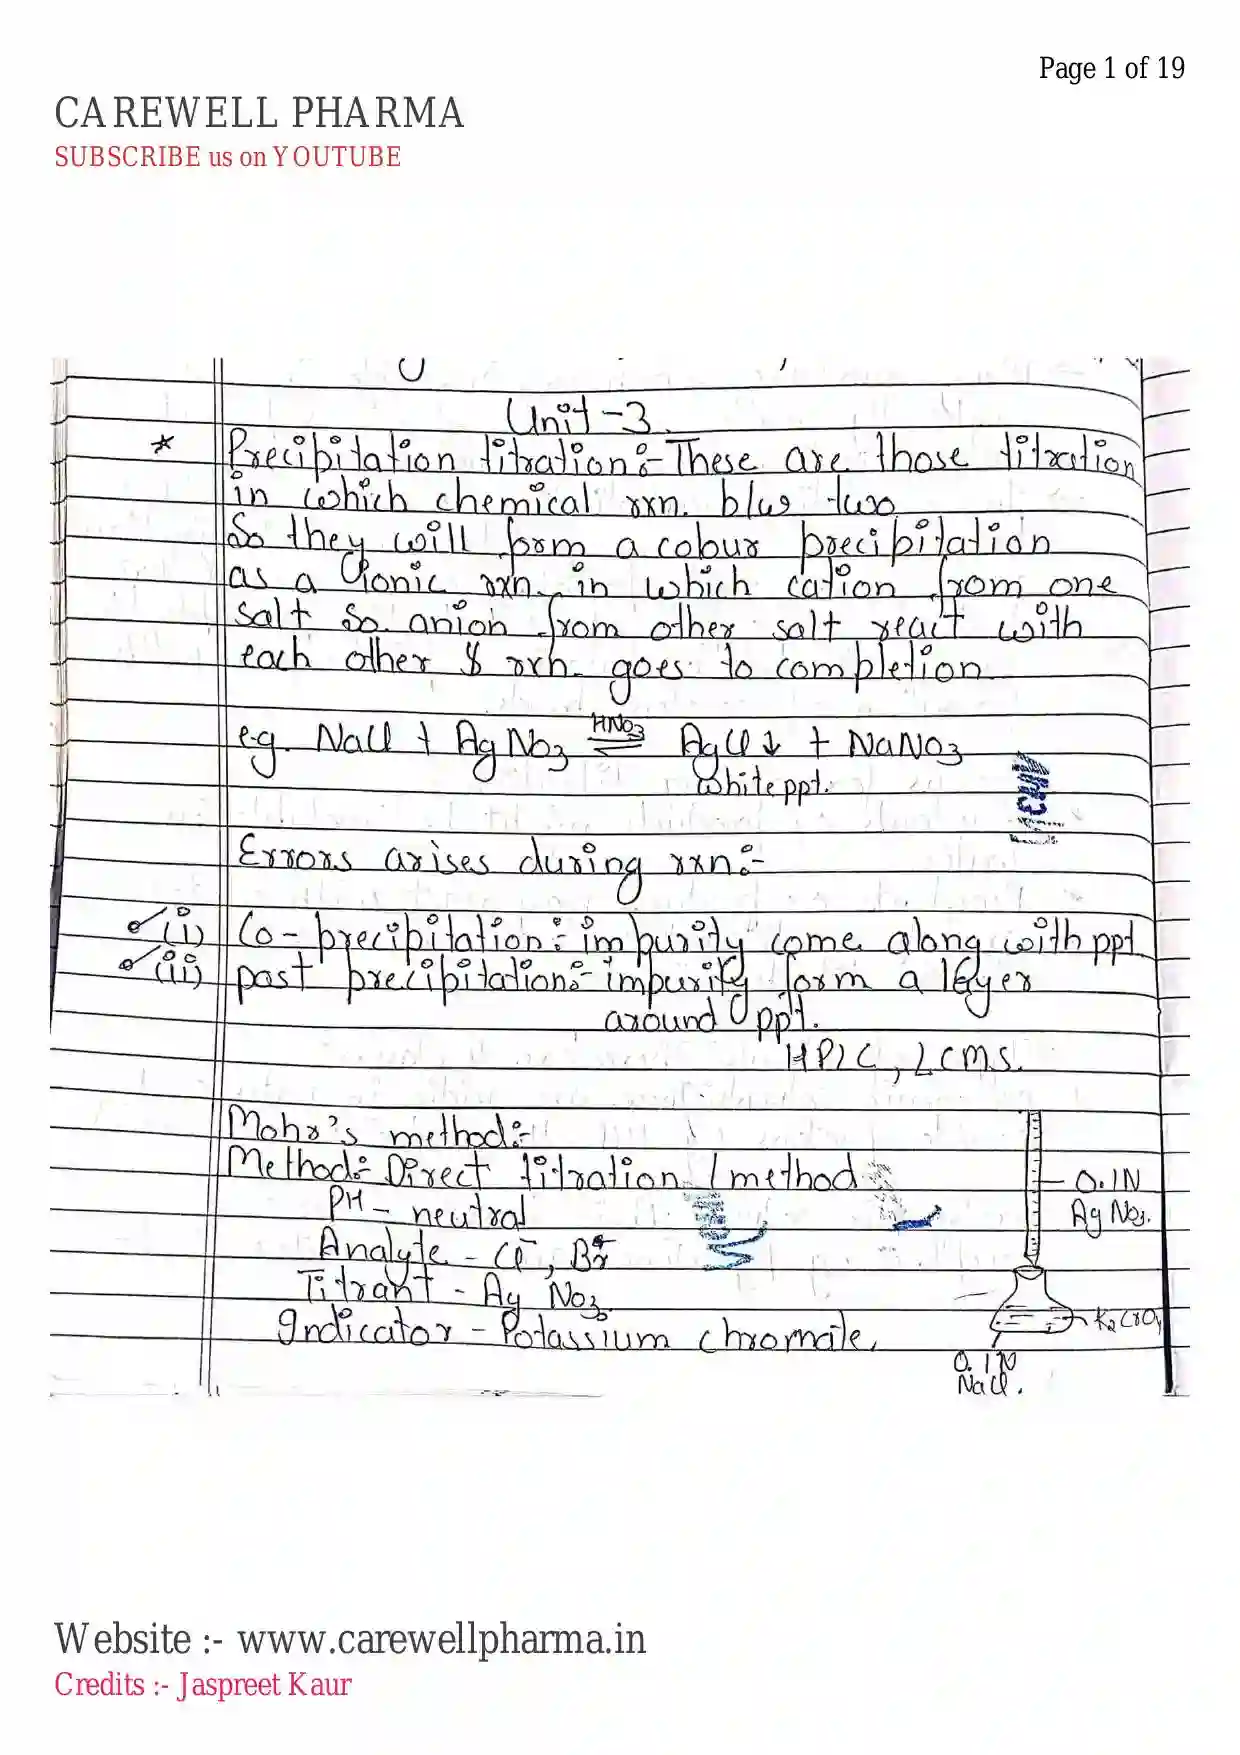 Page 1 of 19
CAREWELL PHARMA
SUBSCRIBE us on YOUTUBE
Unit -3
* Precipitation titration:- These are those titration
in which chemical rxn. b/w two
So they will form a colour precipitation
as a Ionic rxn. in which cation from one
salt so anion from other salt react with
each other & rxn. goes to completion
e.g. NaCl + AgNO3 ⇌ AgCl↓ + NaNO3
HNO3
white ppt.
Errors arises during rxn:-
(i) Co-precipitation:- impurity come along with ppt.
(ii) post precipitation:- impurity form a layer
around ppt.
HPLC, LCMS.
Mohr's method:-
Method:- Direct titration / method
PH - neutral
Analyte - Cl⁻, Br⁻
Titrant - AgNO3.
Indicator - Potassium chromate.
0.1N
AgNO3.
K2CrO4
0.1N
NaCl.
Website :- www.carewellpharma.in
Credits :- Jaspreet Kaur